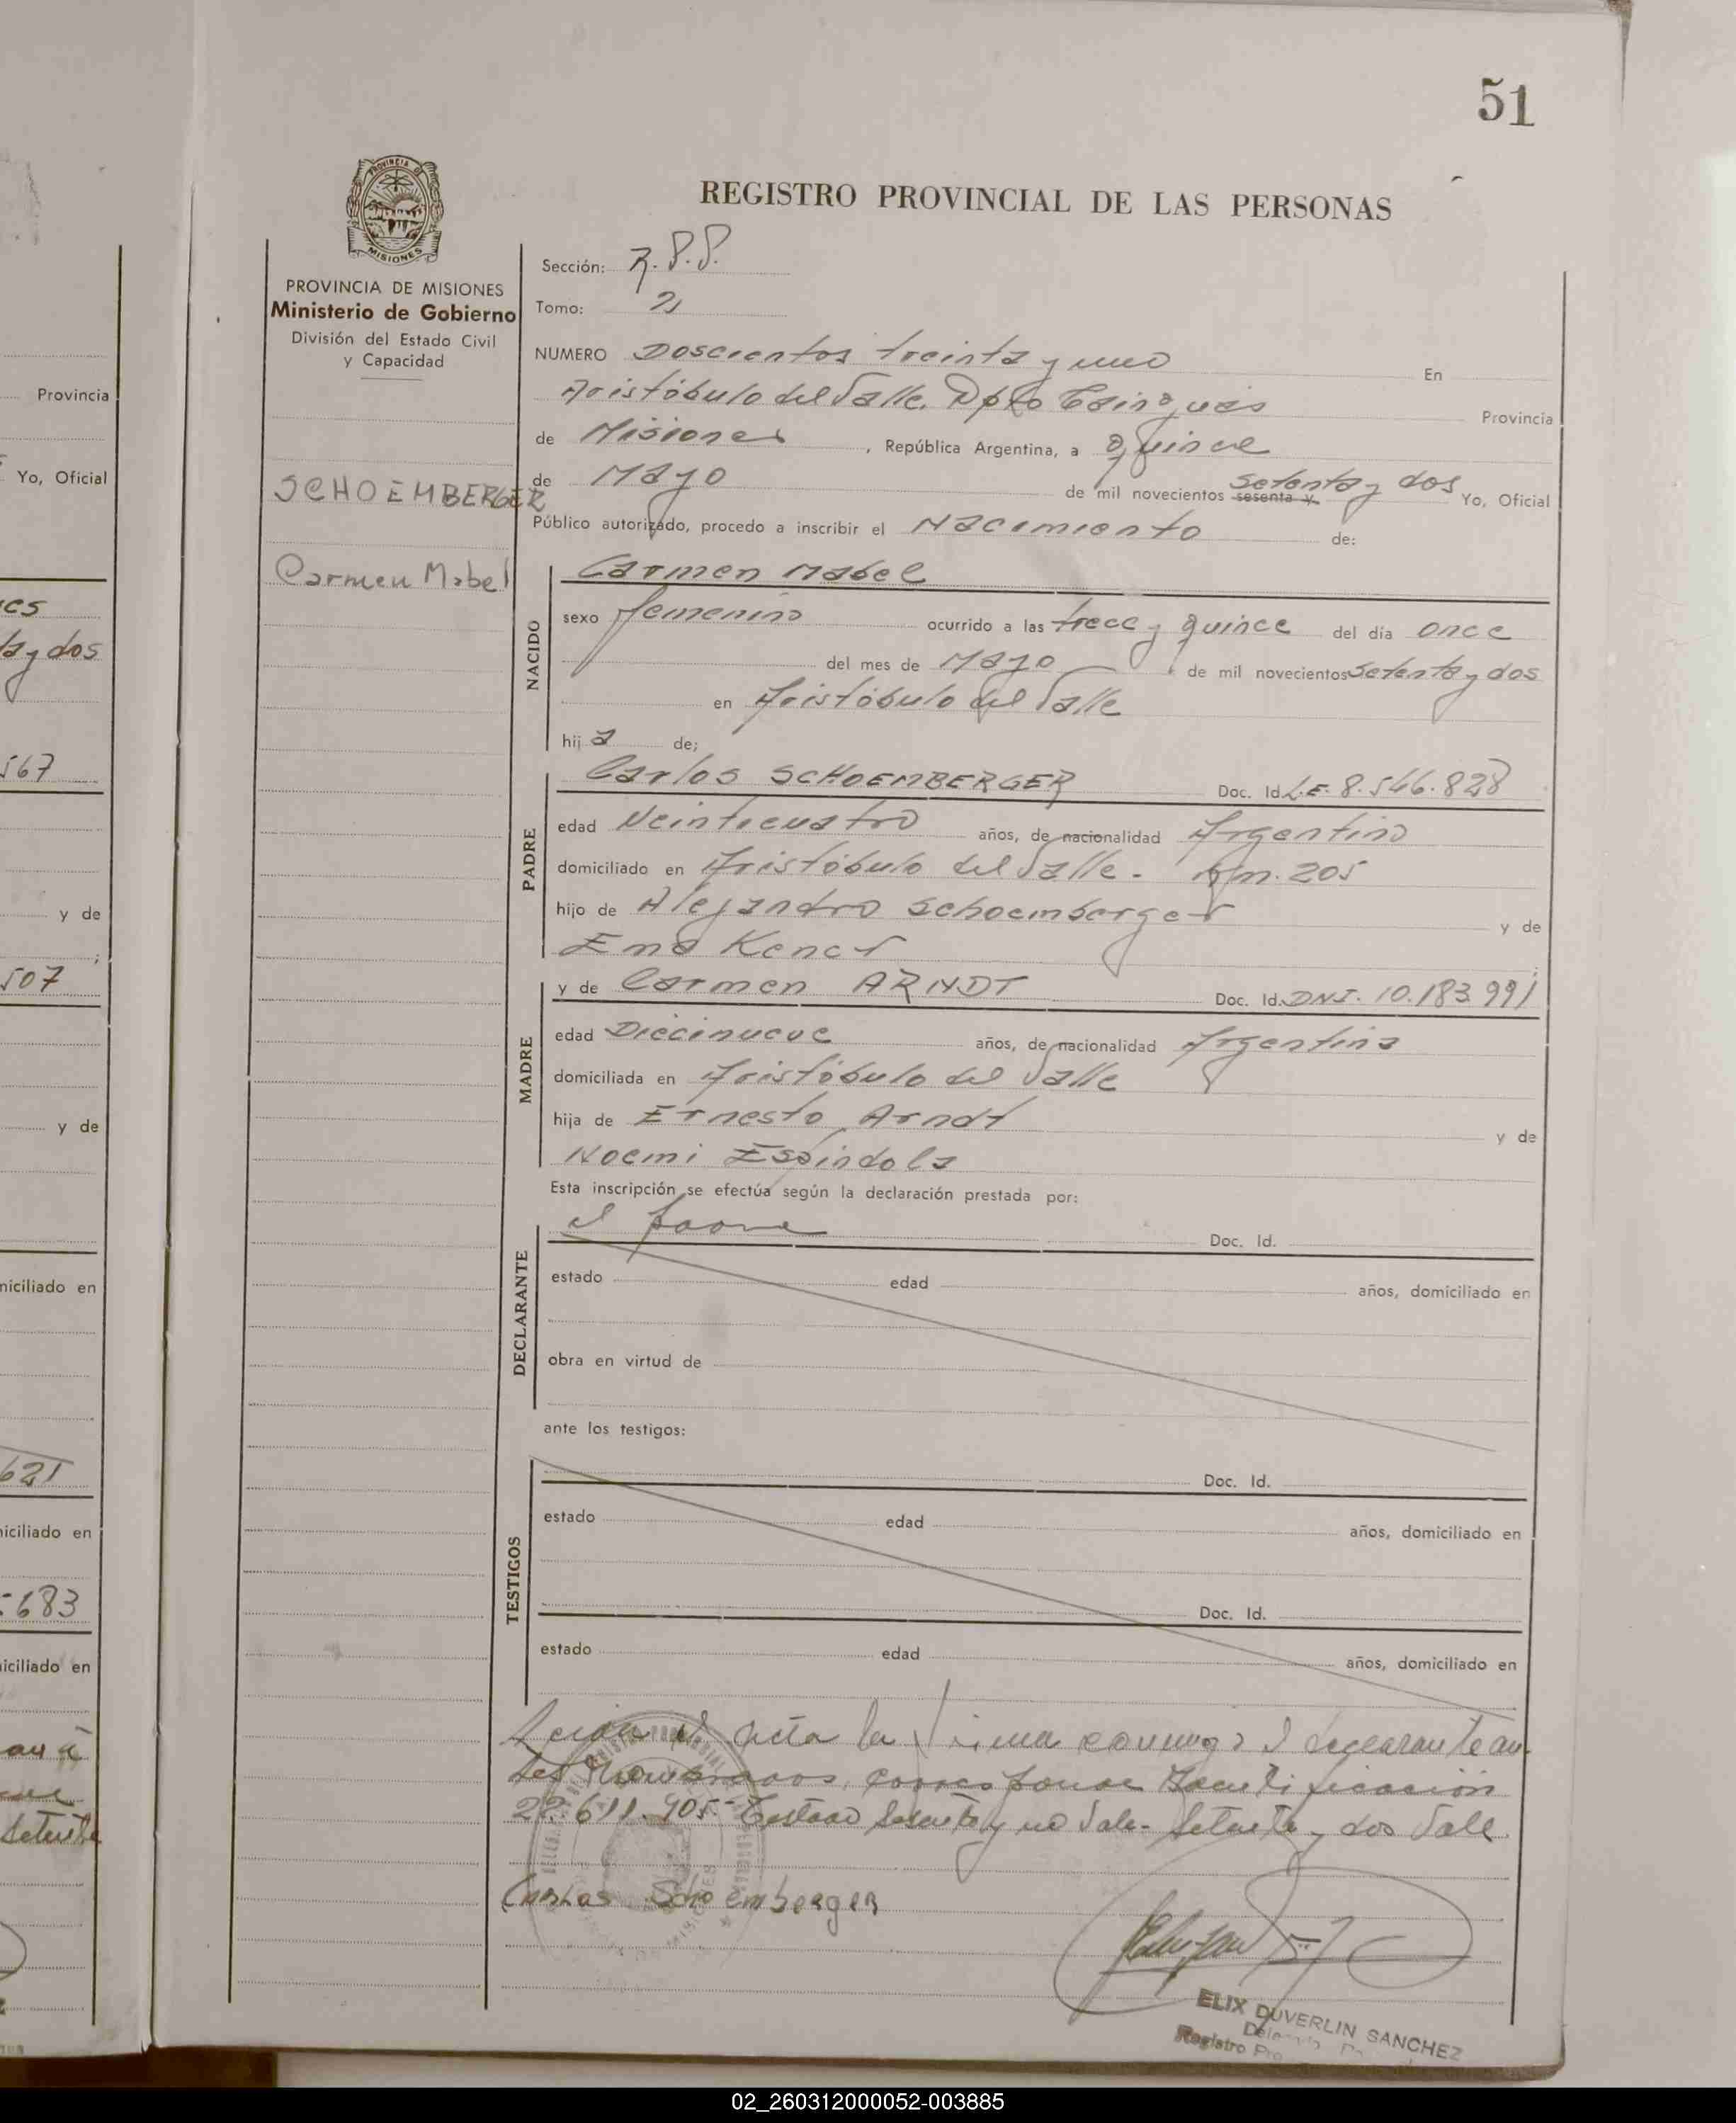 51
PROVINCIA
MISIONES
REGISTRO PROVINCIAL DE LAS PERSONAS
PROVINCIA DE MISIONES
Ministerio de Gobierno
División del Estado Civil
y Capacidad
SCHOEMBERGER
Carmen Mabel
Sección:
Tomo:
NUMERO Doscientos treinta y uno En
Aristóbulo del Valle. Dpto Cainguás Provincia
de Misiones, República Argentina, a quince
de Mayo de mil novecientos sesenta y setenta y dos Yo, Oficial
Público autorizado, procedo a inscribir el Nacimiento de:
NACIDO
Carmen Mabel
sexo femenino ocurrido a las trece y quince del día once
del mes de Mayo de mil novecientos setenta y dos
en Aristóbulo del Valle
hija de;
PADRE
Carlos SCHOEMBERGER Doc. Id. L.E. 8.546.828
edad Veinticuatro años, de nacionalidad Argentino
domiciliado en Aristóbulo del Valle - Km. 205
hijo de Alejandro Schoemberger y de
Ema Kener
MADRE
y de Carmen ARNDT Doc. Id. DNI. 10.183.991
edad Diecinueve años, de nacionalidad Argentina
domiciliada en Aristóbulo del Valle
hija de Ernesto Arndt y de
Noemi Espindola
Esta inscripción se efectúa según la declaración prestada por:
DECLARANTE
el padre Doc. Id.
estado edad años, domiciliado en
obra en virtud de
ante los testigos:
TESTIGOS
Doc. Id.
estado edad años, domiciliado en
Doc. Id.
estado edad años, domiciliado en
acta la firma conmigo el declarante an-
tes nombrado, corresponde Identificación
22.611.905 - Testado sesenta y no Vale - setenta y dos Vale
Carlos Schoemberger
ELIX DUVERLIN SANCHEZ
Registro
Provincia
Yo, Oficial
y dos
567
y de
507
y de
domiciliado en
621
domiciliado en
683
domiciliado en
setenta
02_260312000052-003885